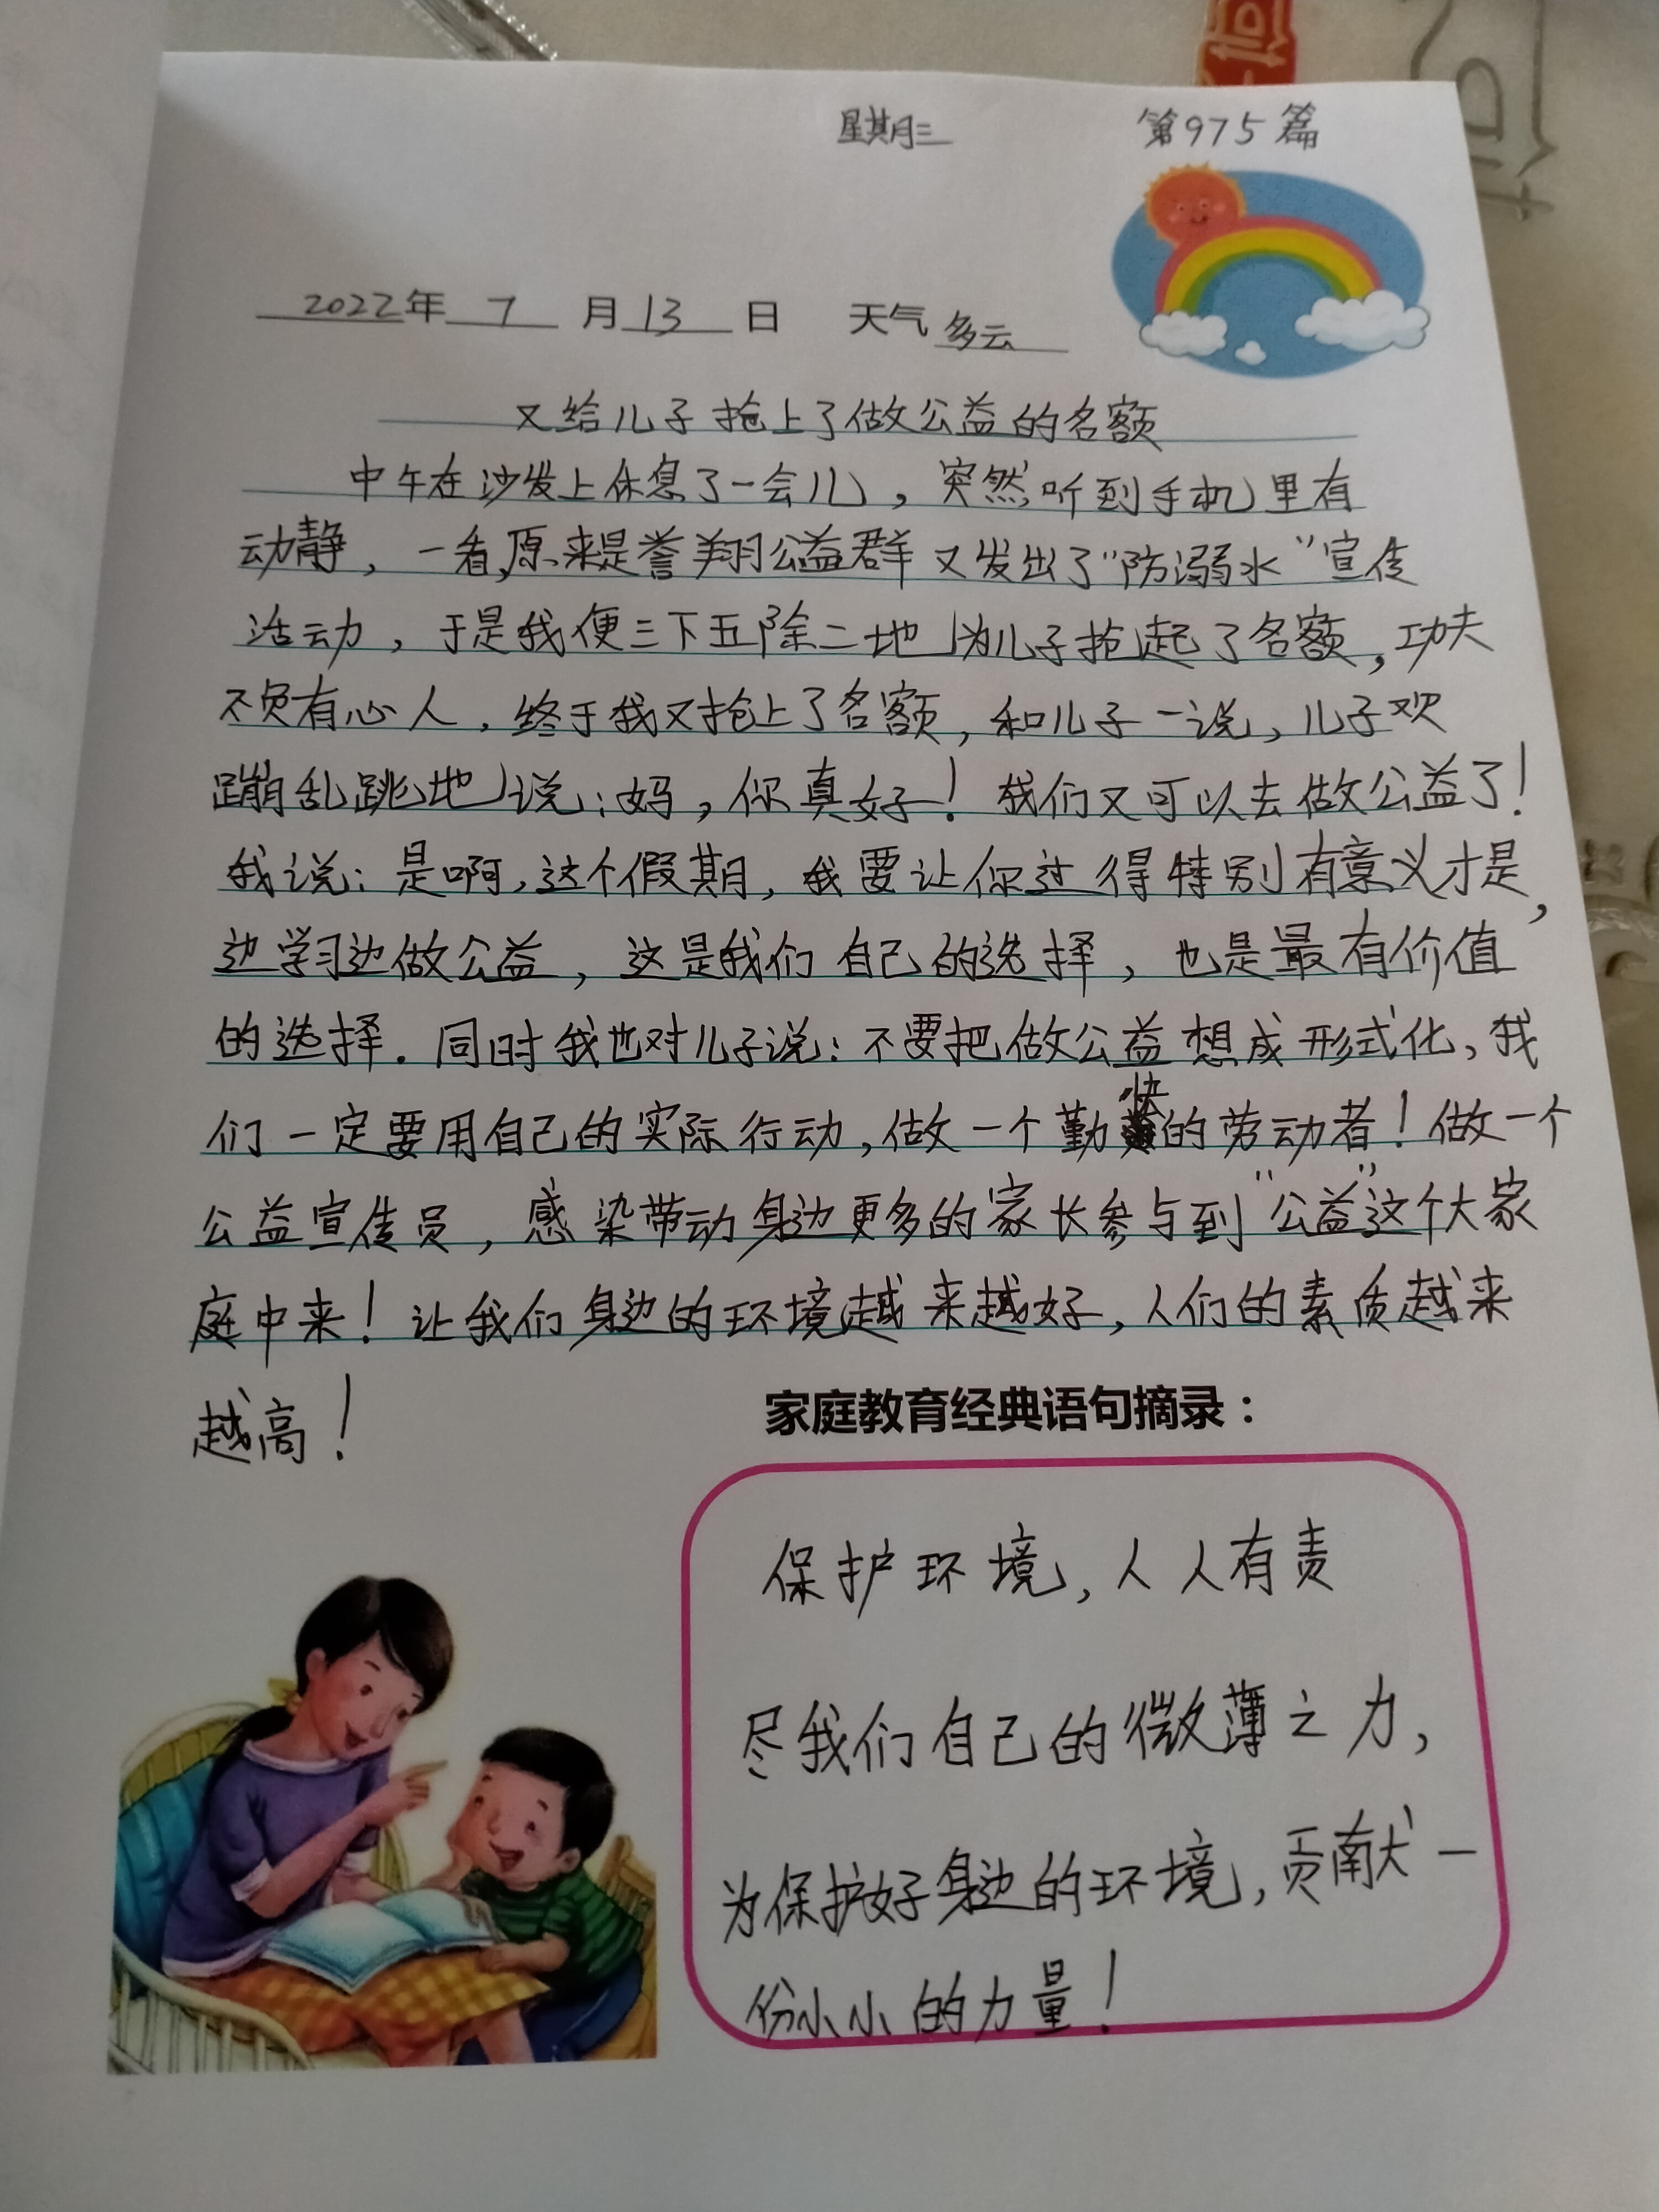 星期三 第975篇
2022年 7 月 13 日 天气 多云
又给儿子抢上了做公益的名额
中午在沙发上休息了一会儿，突然听到手机里有
动静，一看，原来是誉翔公益群又发出了“防溺水”宣传
活动，于是我便三下五除二地为儿子抢起了名额，功夫
不负有心人，终于我又抢上了名额，和儿子一说，儿子欢
蹦乱跳地说：妈，你真好！我们又可以去做公益了！
我说：是啊，这个假期，我要让你过得特别有意义才是，
边学习边做公益，这是我们自己的选择，也是最有价值
的选择．同时我也对儿子说：不要把做公益想成形式化，我
们一定要用自己的实际行动，做一个勤快的劳动者！做一个
公益宣传员，感染带动身边更多的家长参与到“公益”这个大家
庭中来！让我们身边的环境越来越好，人们的素质越来
越高！
家庭教育经典语句摘录：
保护环境，人人有责
尽我们自己的微薄之力，
为保护好身边的环境，贡献一
份小小的力量！